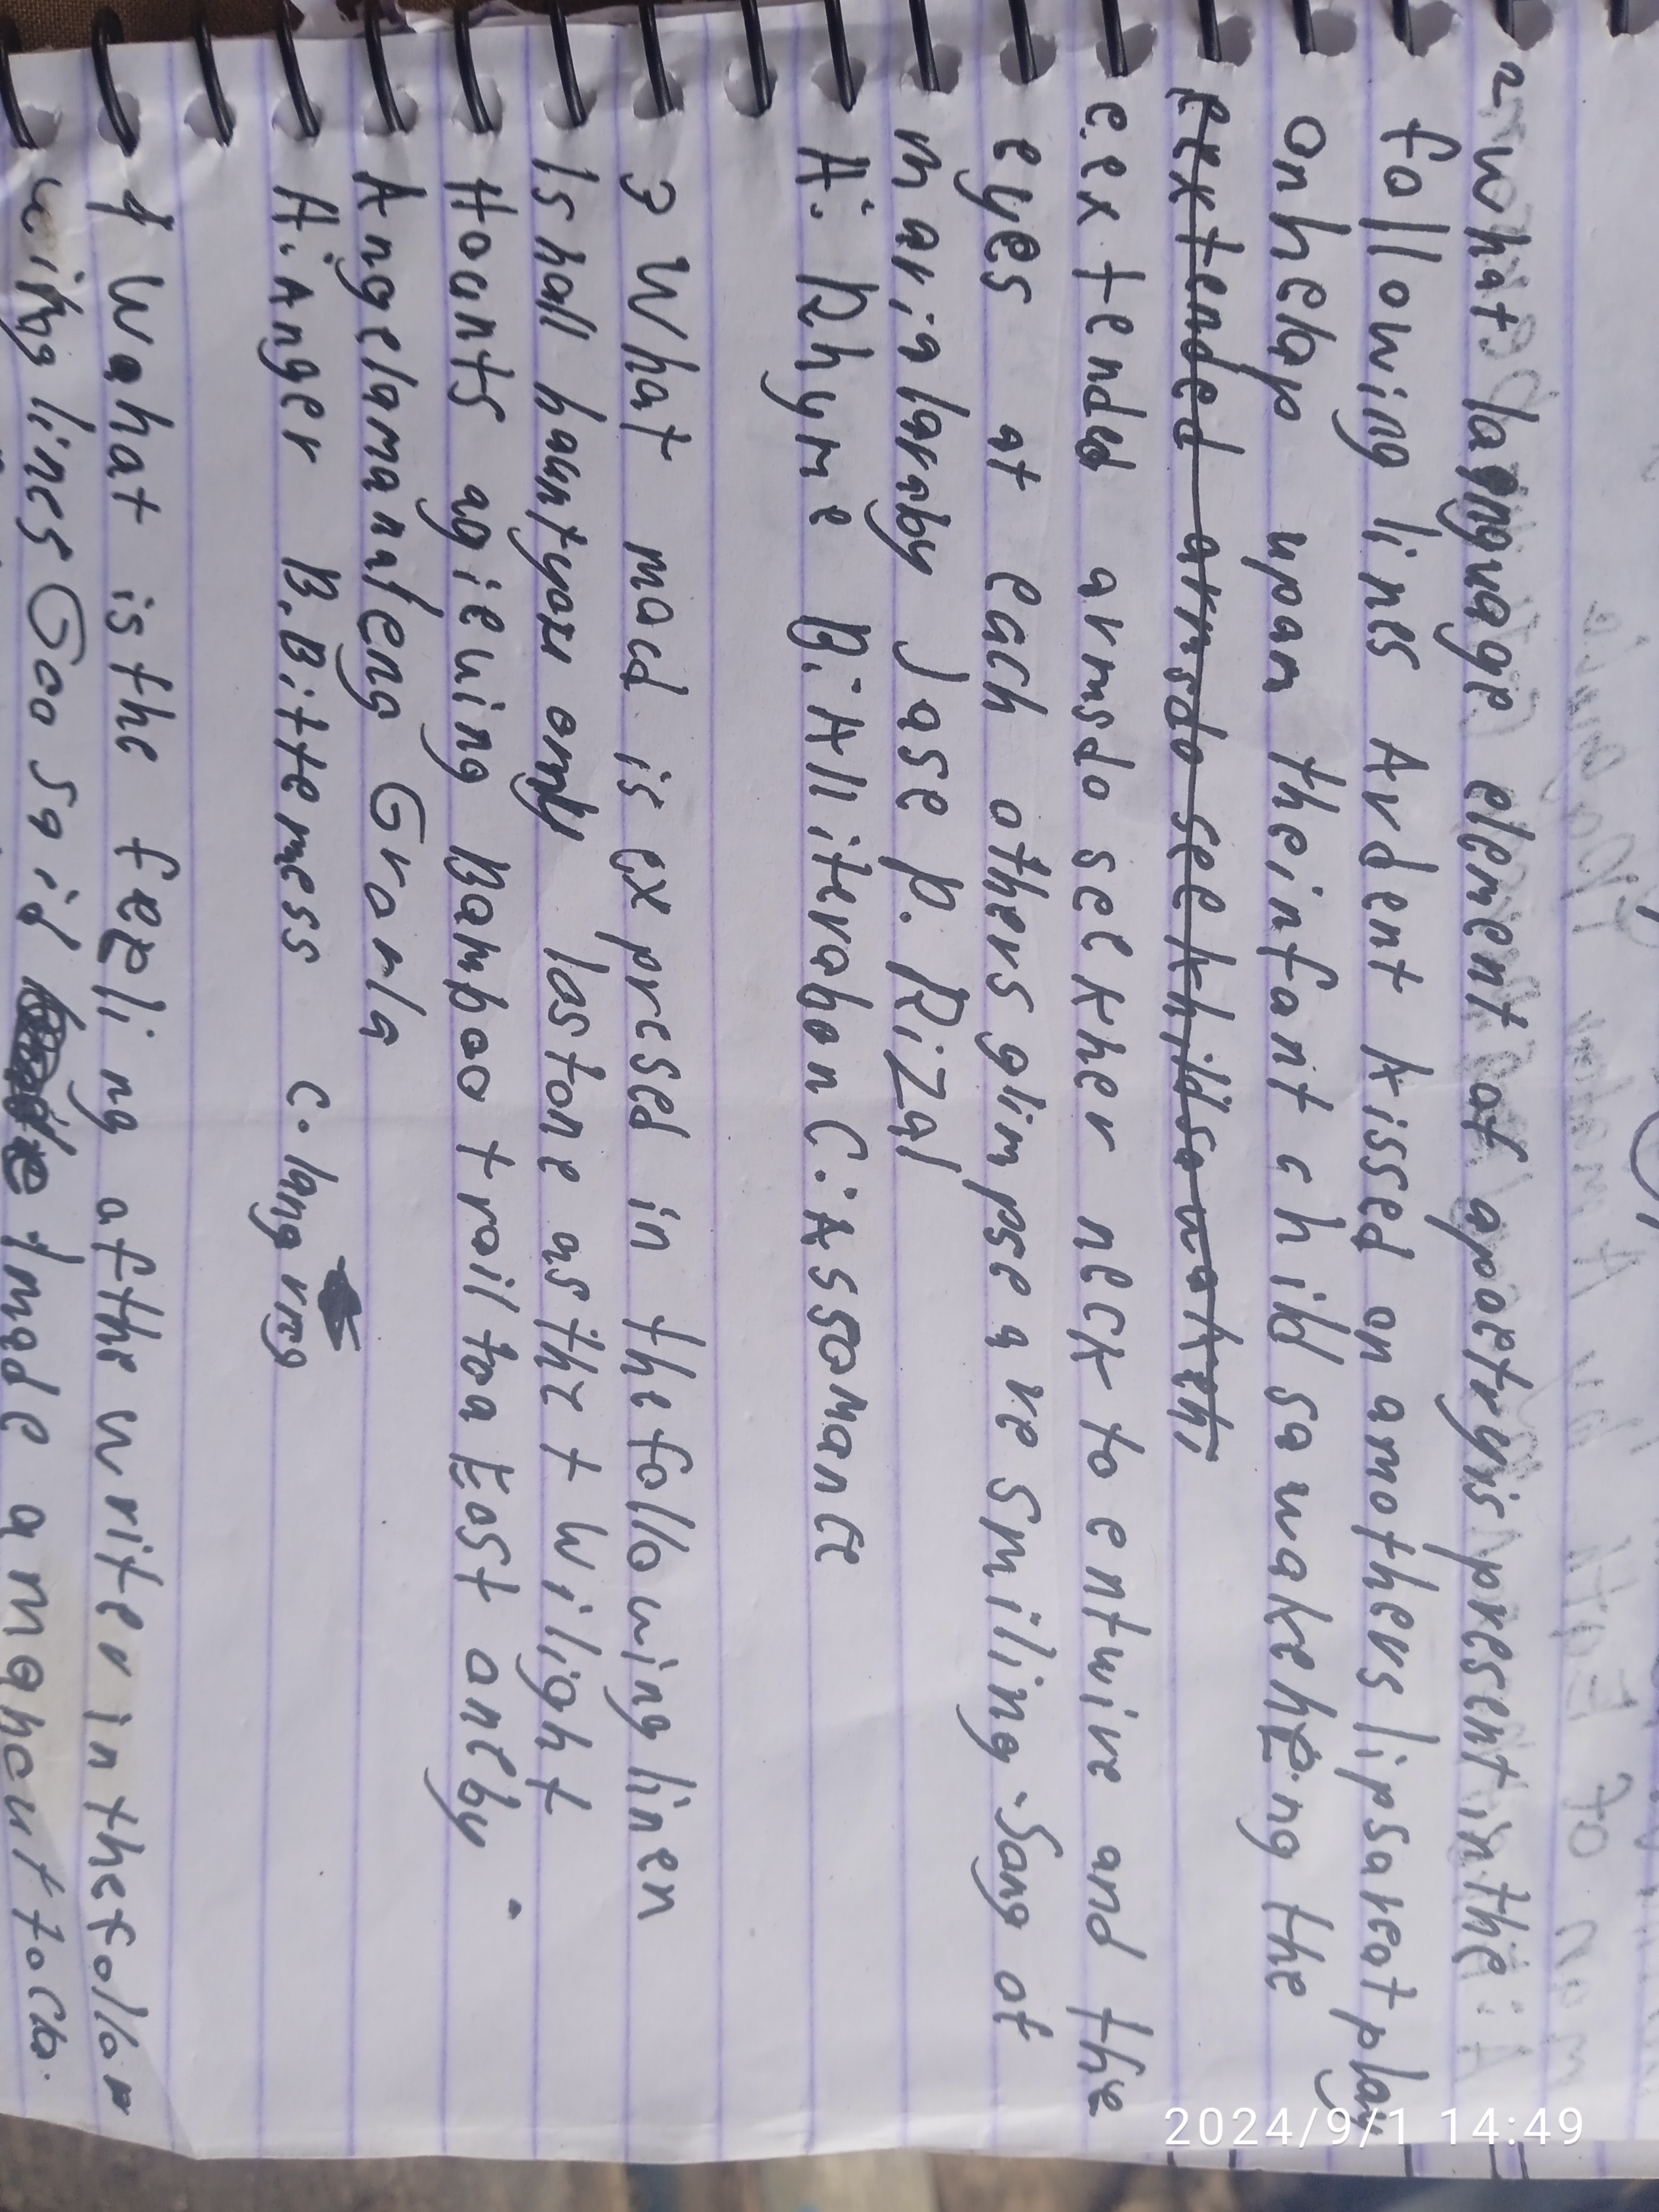 2 what language element of apoetryis present in the
following lines Ardent kissed on amothers lipsareatplay
onhelap upan theinfant child sawakeh.ng the
eextended armsdo seekhildsawaken,
e.extended armsdo seekher neck to entwire and the
eyes at each others glimpse are smiling. Sang of
mariaclaraby Jose p. Rizal
A. Rhyme B. Alliterabon C. Assomance
3 What mood is expresed in thefollowinglinen
Ishall hauntyou only lastone asthet wiligt
Hoants agieuing Bamboo trail toa East onlby
Angelamanaleng Grarla
A. Anger B. Bitterness C. lang
4 Wahat isthe feeling ofthe writer in thefollow
wing lines Goo said Imade amanout tocla.
2024/9/1 14:49